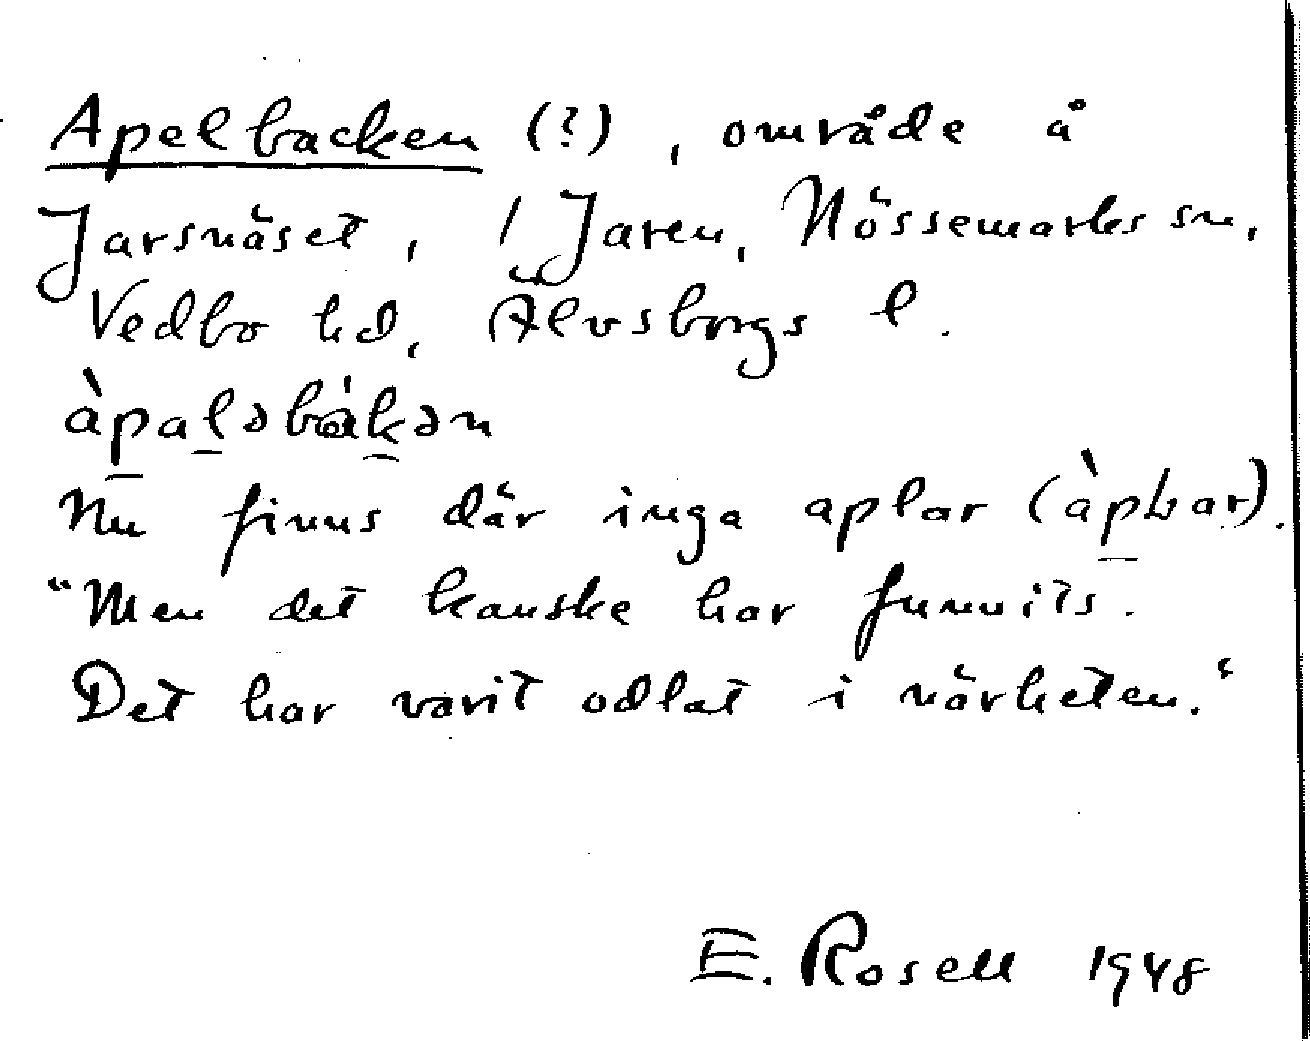 Apelbacken (?), område å
Jarsnäset, / Jaren, Nössemarks sn,
Vedbo hd, Älvsborgs l.
àpaləbákən
Nu finns där inga aplar (àpɫar).
"Men det kanske har funnits.
Det har varit odlat i närheten."
E. Rosell 1948